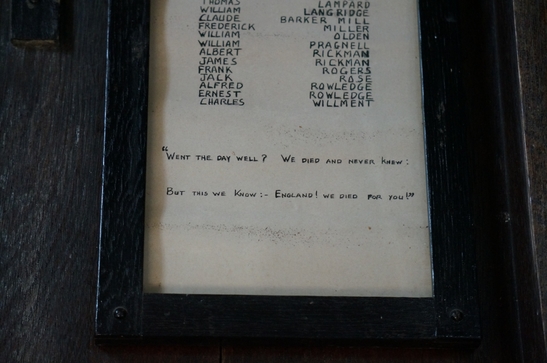 THOMAS LAMPARD
WILLIAM LANGRIDGE
CLAUDE BARKER MILL
FREDERICK MILLER
WILLIAM OLDEN
WILLIAM PRAGNELL
ALBERT RICKMAN
JAMES RICKMAN
FRANK ROGERS
JACK ROSE
ALFRED ROWLEDGE
ERNEST ROWLEDGE
CHARLES WILLMENT
"WENT THE DAY WELL? WE DIED AND NEVER KNEW:
BUT THIS WE KNOW:- ENGLAND! WE DIED FOR YOU!"